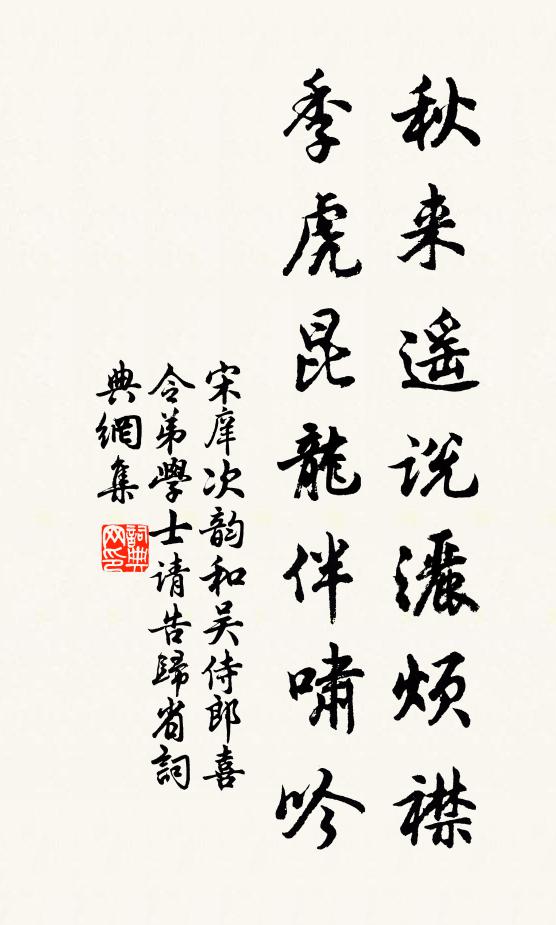 秋来遥说灑烦襟
季虎昆龍伴啸吟
宋庠次韵和吴侍郎喜
令弟學士请告歸省詞
典網集
詞典
网印